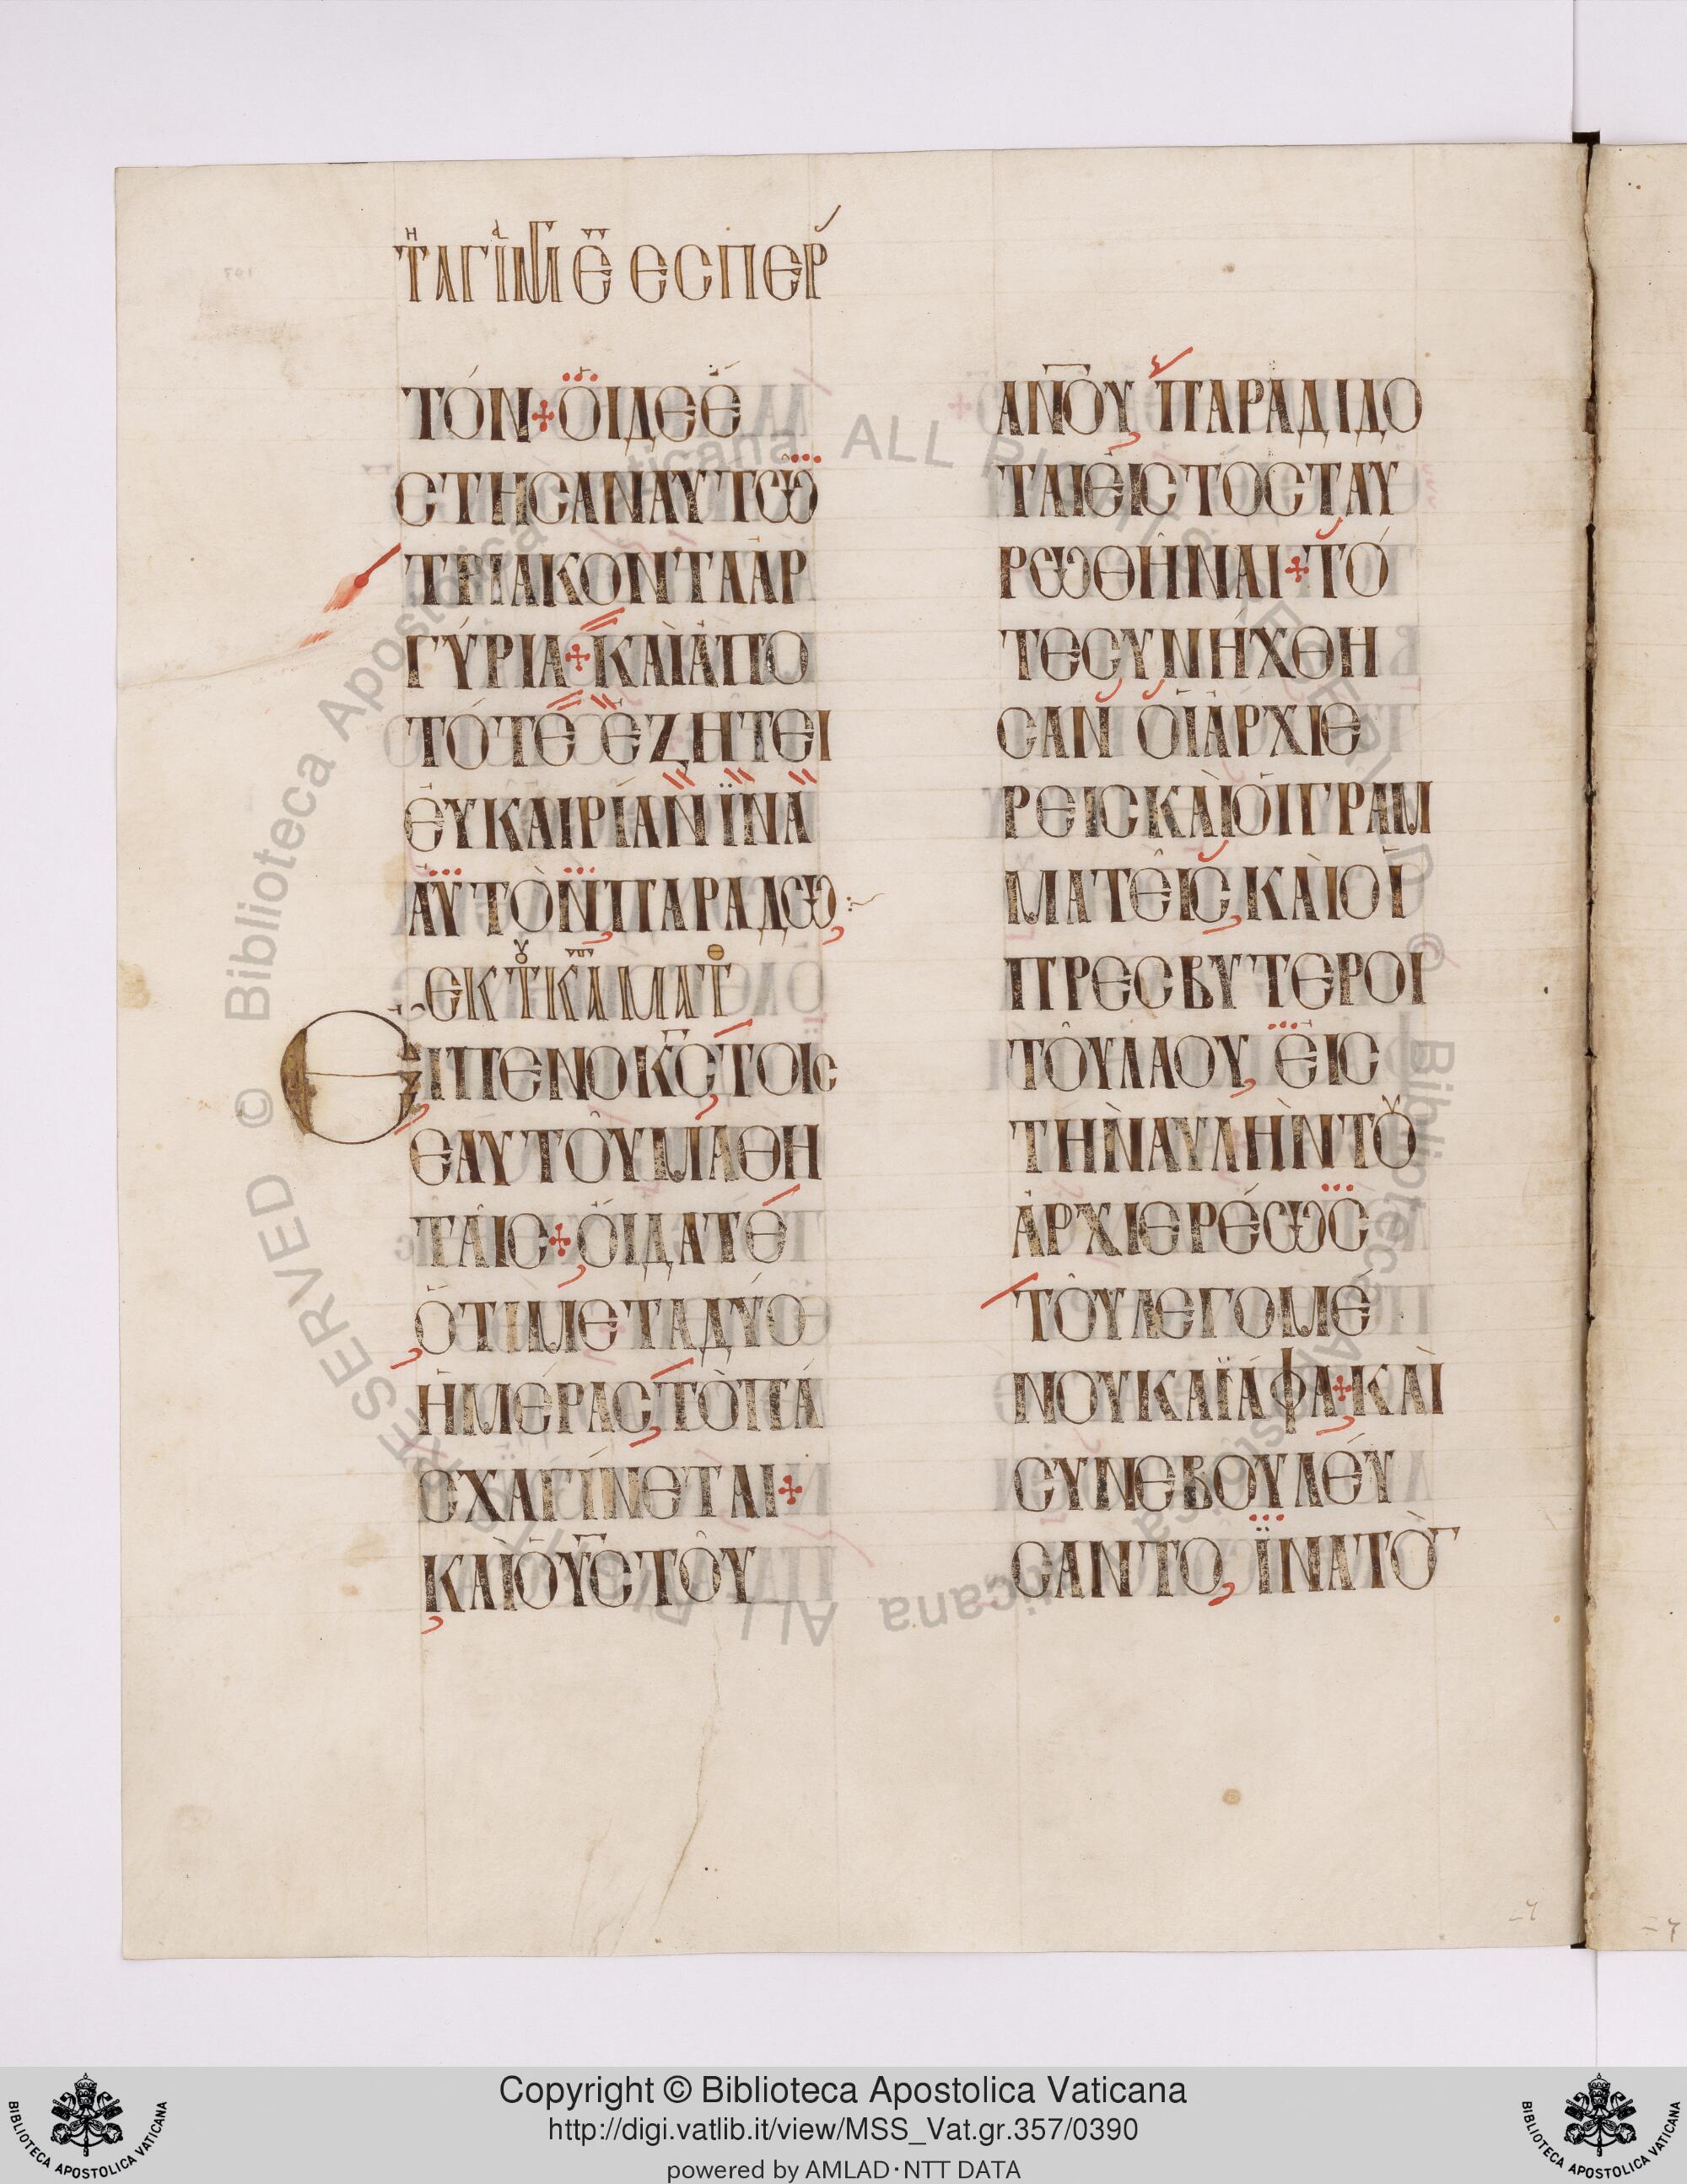 ΤΗ ΑΓΙ ΜΕ Ε ΕСΠΕΡ
ΤΌΝ + ΟἹΔΕἘ
СΤΗСΑΝΑΥΤΩ
ΤΡΙΑΚΟΝΤΑἈΡ
ΓΎΡΙΑ + ΚΑῚἈΠΟ
ΤΌΤΕ ἘΖΗΤΕΙ
ἘΥΚΑΙΡΊΑΝ ἽΝΑ
ἈΥΤῸΝ, ΠΑΡΑΔΩ,
ΕΚ ΤΟΥ Κ ΜΑΤΘ
ΕΙΠΕΝ Ὁ Κ̅С̅ ΤΟΙС
ΕΑΥΤΟΥ͂ ΜΑΘΗ
ΤΑΙ͂С + ΟἼΔΑΤΈ
ὍΤΙΜΕΤΑΔΎΟ
ἩΜΈΡΑС, ΤῸΠΆ
СΧΑΓΊΝΕΤΑΙ +
ΚΑῚὉΥ̅С̅ΤΟΥ͂
ΑΝ̅Ο̅Υ̅, ΠΑΡΑΔΊΔΟ
ΤΑΙἘΙСΤΌСΤΑΥ
ΡΩΘΗ͂ΝΑΙ + ΤΌ
ΤΕСΥΝΗΧΘΗ
СΑΝ ΟἹἈΡΧΙΕ
ΡΕΙСΚΑῚΟἹΓΡΑΜ
ΜΑΤΕΙ͂С, ΚΑῚΟἹ
ΠΡΕСΒΥΤΕΡΟΙ
ΤΟΥ͂ΛΑΟΥ, ἘΙС
ΤΗΝΑΥΛῊΝΤΟΥ
ἈΡΧΙΕΡΈΩС
ΤΟΥ͂ΛΕΓΟΜΈ
ΝΟΥΚΑΪΆΦΑ + ΚΑῚ
СΥΝΕΒΟΥΛΕΎ
СΑΝΤΟ, ἽΝΑΤῸ
Copyright © Biblioteca Apostolica Vaticana
http://digi.vatlib.it/view/MSS_Vat.gr.357/0390
powered by AMLAD·NTT DATA
BIBLIOTECA APOSTOLICA VATICANA
BIBLIOTECA APOSTOLICA VATICANA